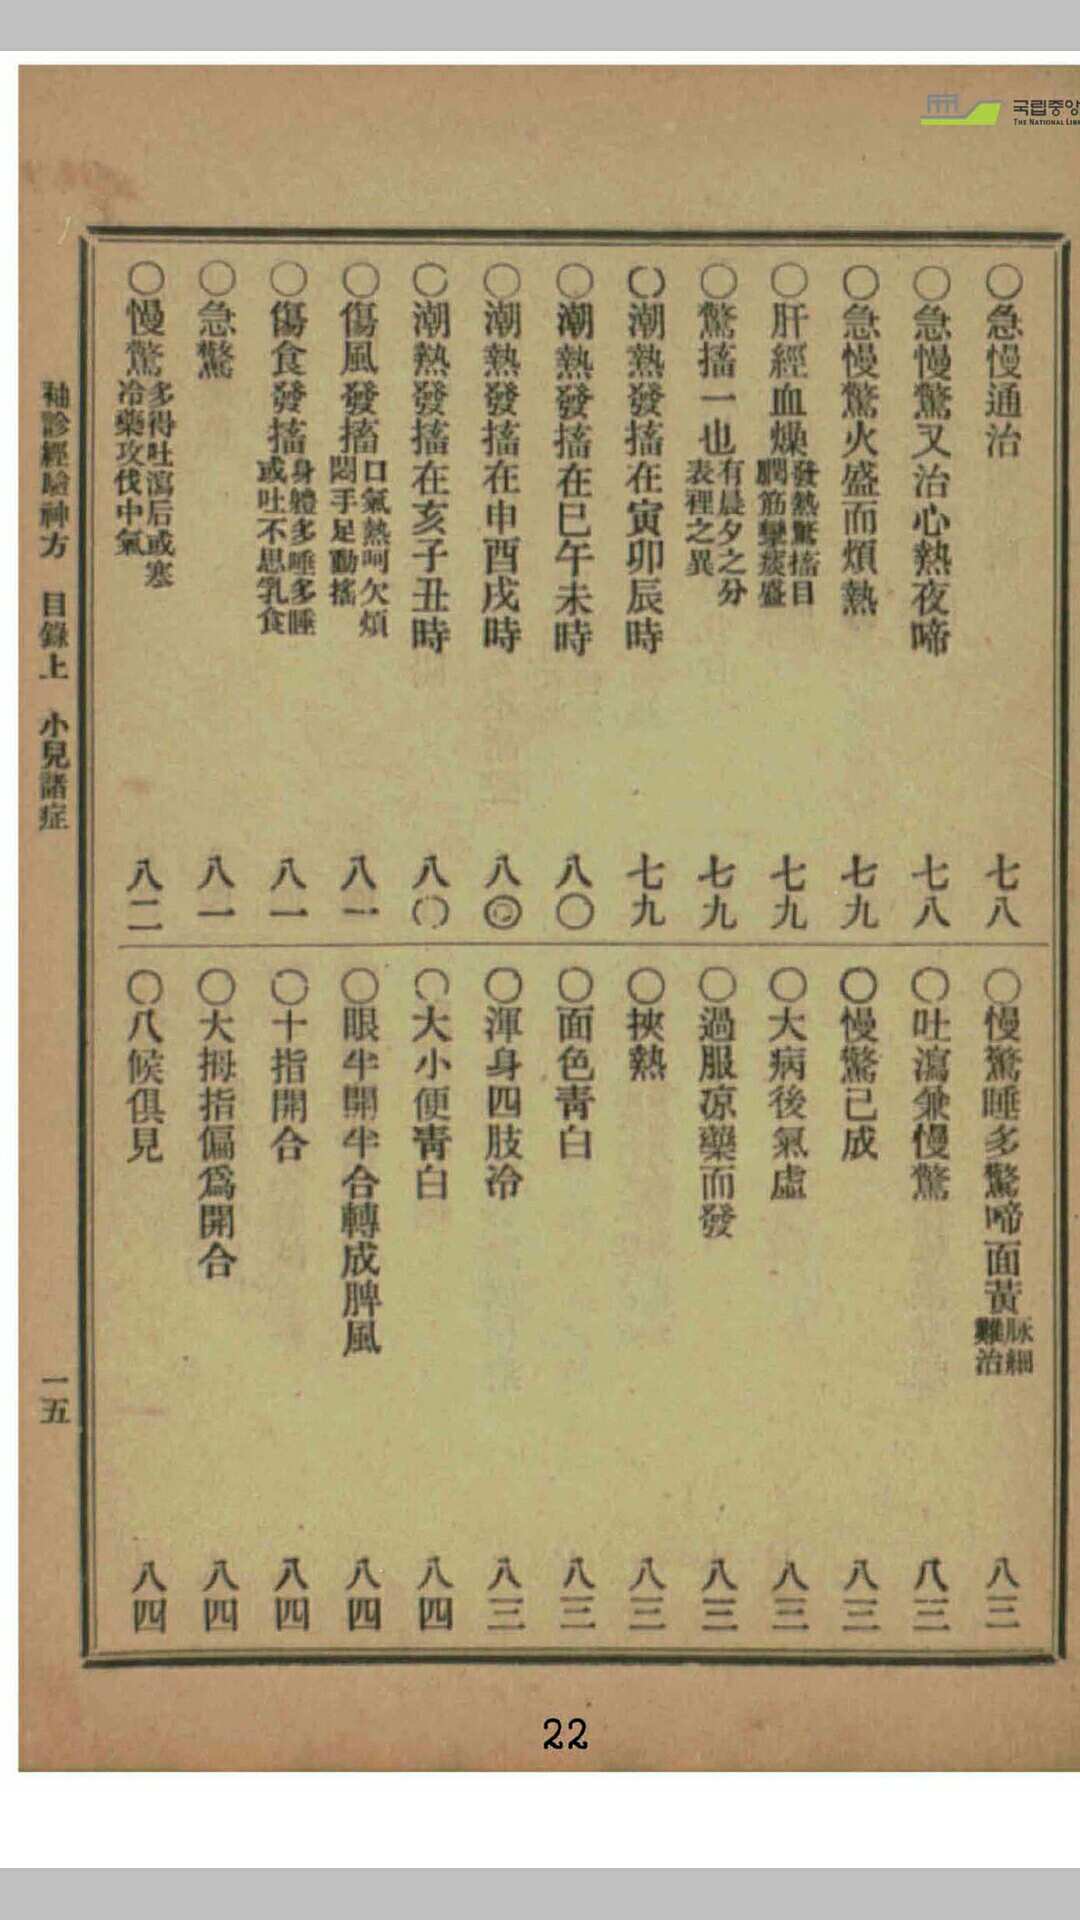 국립중앙
THE NATIONAL LIBR
〇急慢通治 七八
〇急慢驚又治心熱夜啼 七八
〇急慢驚火盛而煩熱 七九
〇肝經血燥發熱驚搐目瞤筋攣痰盛 七九
〇驚搐一也有晨夕之分表裡之異 七九
〇潮熱發搐在寅卯辰時 七九
〇潮熱發搐在巳午未時 八〇
〇潮熱發搐在申酉戌時 八〇
〇潮熱發搐在亥子丑時 八〇
〇傷風發搐口氣熱呵欠煩悶手足動搖 八一
〇傷食發搐身體多唾多睡或吐不思乳食 八一
〇急驚 八一
〇慢驚多得吐瀉后或寒冷藥攻伐中氣 八二
〇慢驚睡多驚啼面黃脉細難治 八三
〇吐瀉兼慢驚 八三
〇慢驚已成 八三
〇大病後氣虛 八三
〇過服凉藥而發 八三
〇挾熱 八三
〇面色青白 八三
〇渾身四肢冷 八三
〇大小便靑白 八四
〇眼半開半合轉成脾風 八四
〇十指開合 八四
〇大拇指偏爲開合 八四
〇八候俱見 八四
袖診經驗神方 目錄上 小兒諸症 一五
22